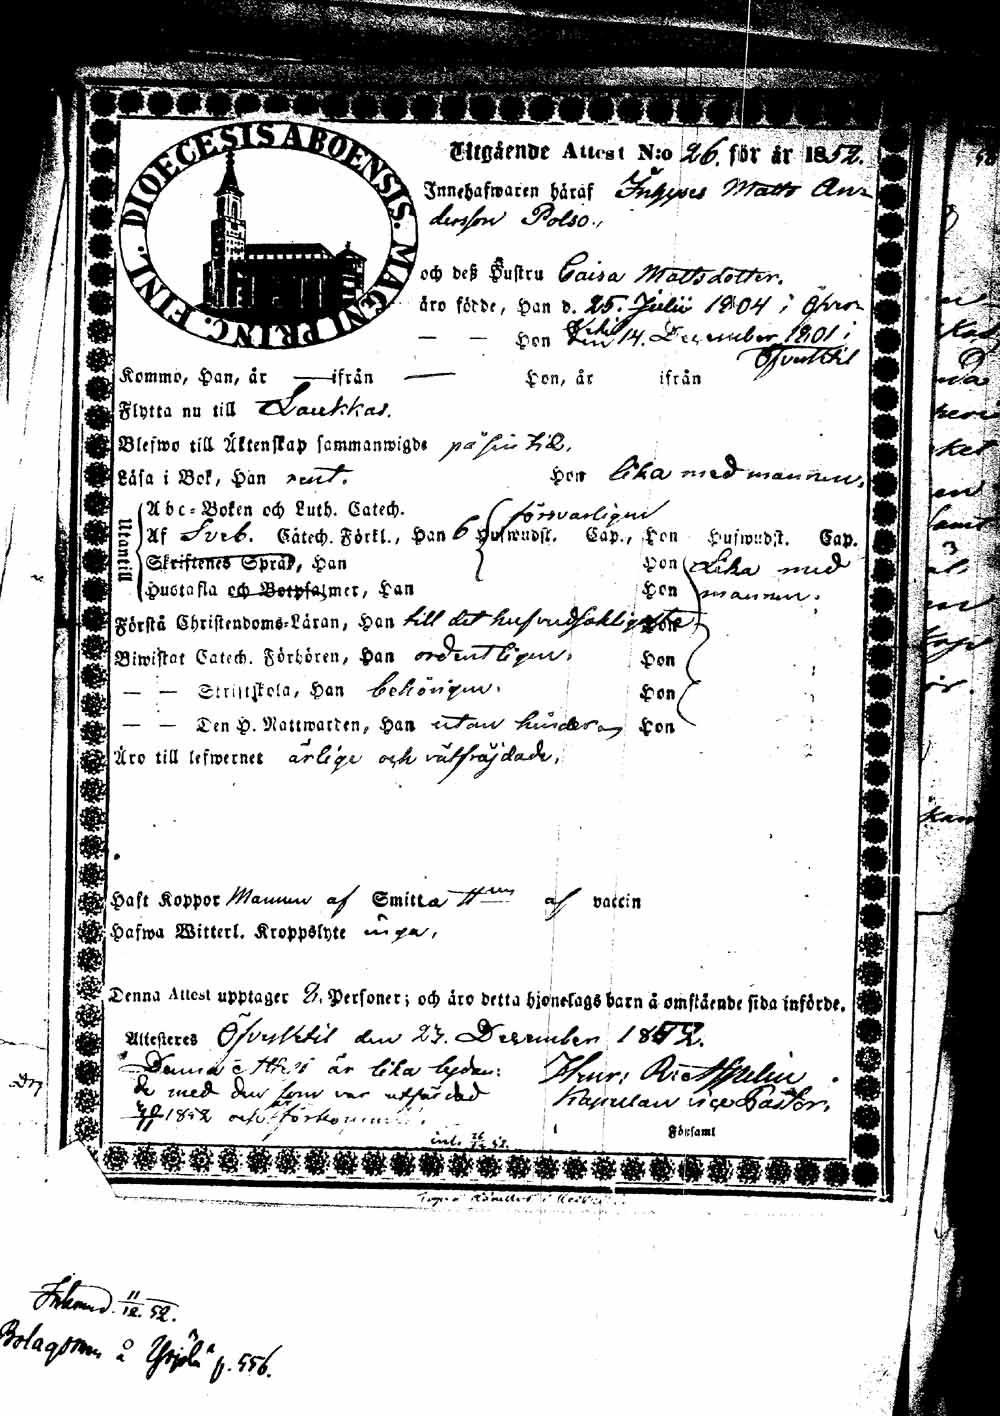 DIOECESIS ABOENSIS. MAGNI PRINC. FINL.
Utgående Attest N:o 26. för år 1852.
Innehafwaren häraf Inhyses Matts An-
dersson Polso.,
och deß Hustru Caisa Mattsdotter.
äro födde, Han d. 25. Julii 1804 i Öfver-
— — Hon den 14. December 1801 i
Öfvertktil
Kommo, Han, år — ifrån — Hon, år ifrån
Flytta nu till Laukkas.
Blefwo till Äktenskap sammanwigde på sin tid.
Läsa i Bok, Han rent. Hon lika med mannen.
Utantill
Abc-Boken och Luth. Catech. försvarligen
Af Sveb. Catech. Förkl., Han 6 Hufwudst. Cap., Hon Hufwudst. Cap.
Skriftenes Språk, Han Hon Lika med
Hustafla och Botpsalmer, Han Hon mannen.
Förstå Christendoms-Läran, Han till det hufvudsakligaste Hon
Biwistat Catech. Förhören, Han ordentligen. Hon
— — Skriftskola, Han behörigen. Hon
— — Den H. Nattwarden, Han utan hinder Hon
Äro till lefwernet ärlige och välfräjdade.
Haft Koppor Mannen af Smitta af vaccin
Hafwa Witterl. Kroppslyte inga.
Denna Attest upptager 2. Personer; och äro detta hjonelags barn å omstående sida införde.
Attesteres den 23. December 1852.
Denna är lika lyden-
de med den som var utfärdad
1852 och
Kapellan vice Pastor.
Församl
11/12. 52.
Bolagsman å p. 556.